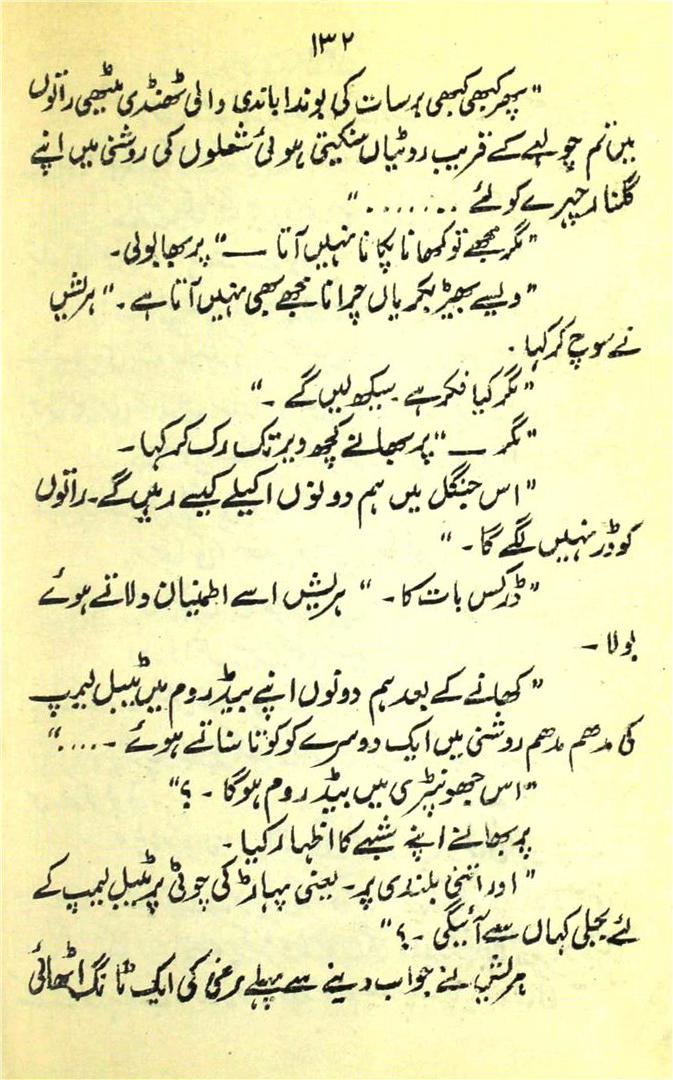 ۱۳۲
"پھر کبھی کبھی برسات کی بوندا باندی والی ٹھنڈی میٹھی راتوں
میں تم چولہے کے قریب روٹیاں سنکیتی ہوئی شعلوں کی روشنی میں اپنے
گلنار چہرے کو لئے ......."
"مگر مجھے تو کھانا پکانا نہیں آتا —" پربھا بولی۔
"ویسے بھیڑ بکریاں چرانا مجھے بھی نہیں آتا ہے۔" ہریش
نے سوچ کر کہا۔
"مگر کیا فکر ہے۔ سیکھ لیں گے۔"
"مگر —" پربھا نے کچھ دیر تک رک کر کہا۔
"اس جنگل میں ہم دونوں اکیلے کیسے رہیں گے۔ راتوں
کو ڈر نہیں لگے گا۔"
"ڈر کس بات کا۔" ہریش اسے اطمینان دلاتے ہوئے
بولا۔
"کھانے کے بعد ہم دونوں اپنے بیڈ روم میں ٹیبل لیمپ
کی مدھم مدھم روشنی میں ایک دوسرے کو کوتا سناتے ہوئے۔...."
"اس جھونپڑی میں بیڈ روم ہوگا۔؟"
پربھا نے اپنے شبہے کا اظہار کیا۔
"اور اتنی بلندی پر۔ یعنی پہاڑ کی چوٹی پر ٹیبل لیمپ کے
لئے بجلی کہاں سے آئیگی۔؟"
ہریش نے جواب دینے سے پہلے مرغی کی ایک ٹانگ اٹھائی